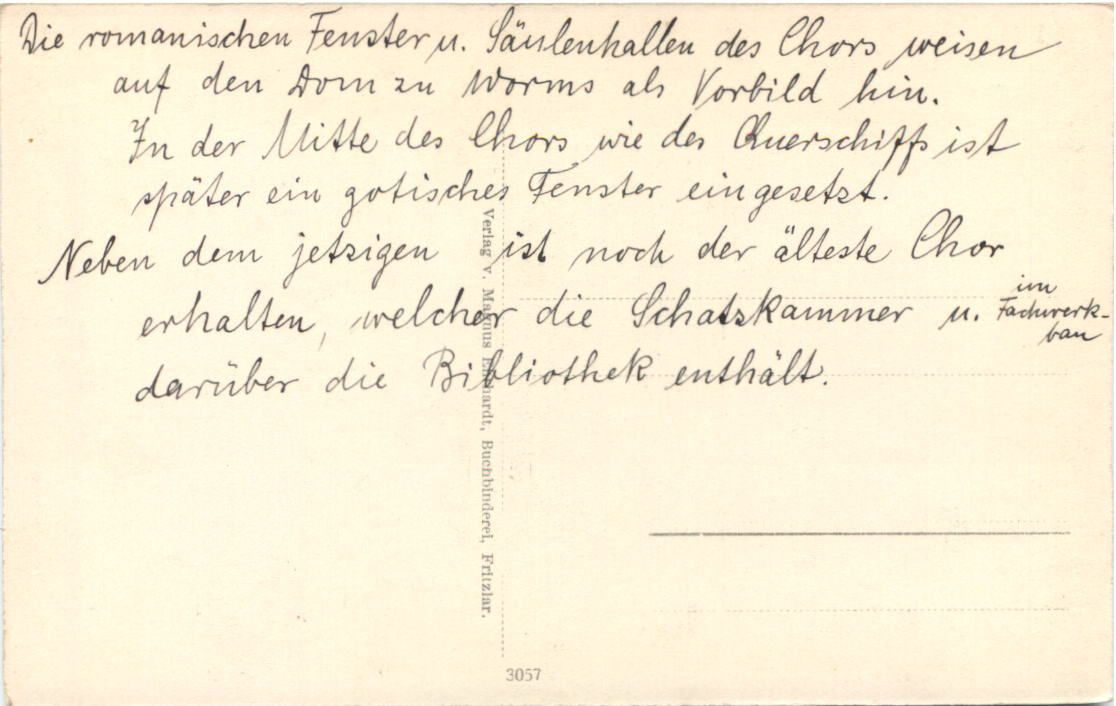 Die romanischen Fenster u. Säulenhallen des Chors weisen
auf den Dom zu Worms als Vorbild hin.
In der Mitte des Chors wie des Querschiffs ist
später ein gotisches Fenster eingesetzt.
Neben dem jetzigen ist noch der älteste Chor
erhalten, welcher die Schatzkammer u. im
Fachwerk-
bau
darüber die Bibliothek enthält.
Verlag v. Magnus Ehrhardt, Buchbinderei, Fritzlar.
3057